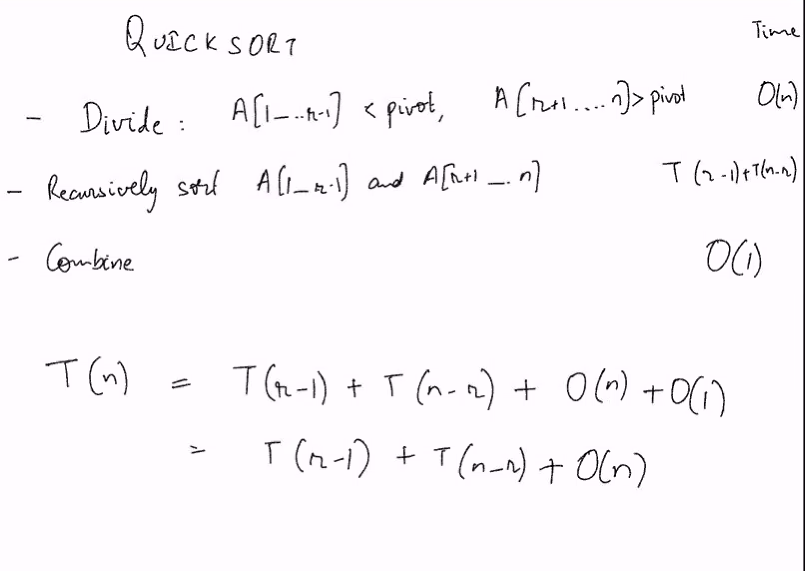 QUICKSORT
Time
- Divide: A[1-..r-1] < pivot, A[r+1....n] > pivot O(n)
- Recursively sort A[1-r-1] and A[r+1-.n] T(r-1)+T(n-r)
- Combine O(1)
T(n) = T(r-1) + T(n-r) + O(n) + O(1)
= T(r-1) + T(n-r) + O(n)